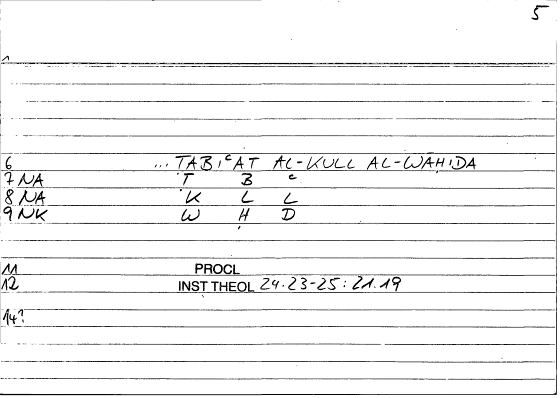 5
1
6 ... TABIʿAT AL-KULL AL-WAḤIDA
7 NA Ṭ B ʿ
8 NA K L L
9 NK W Ḥ D
11 PROCL
12 INST THEOL 24.23-25: 21.19
14?